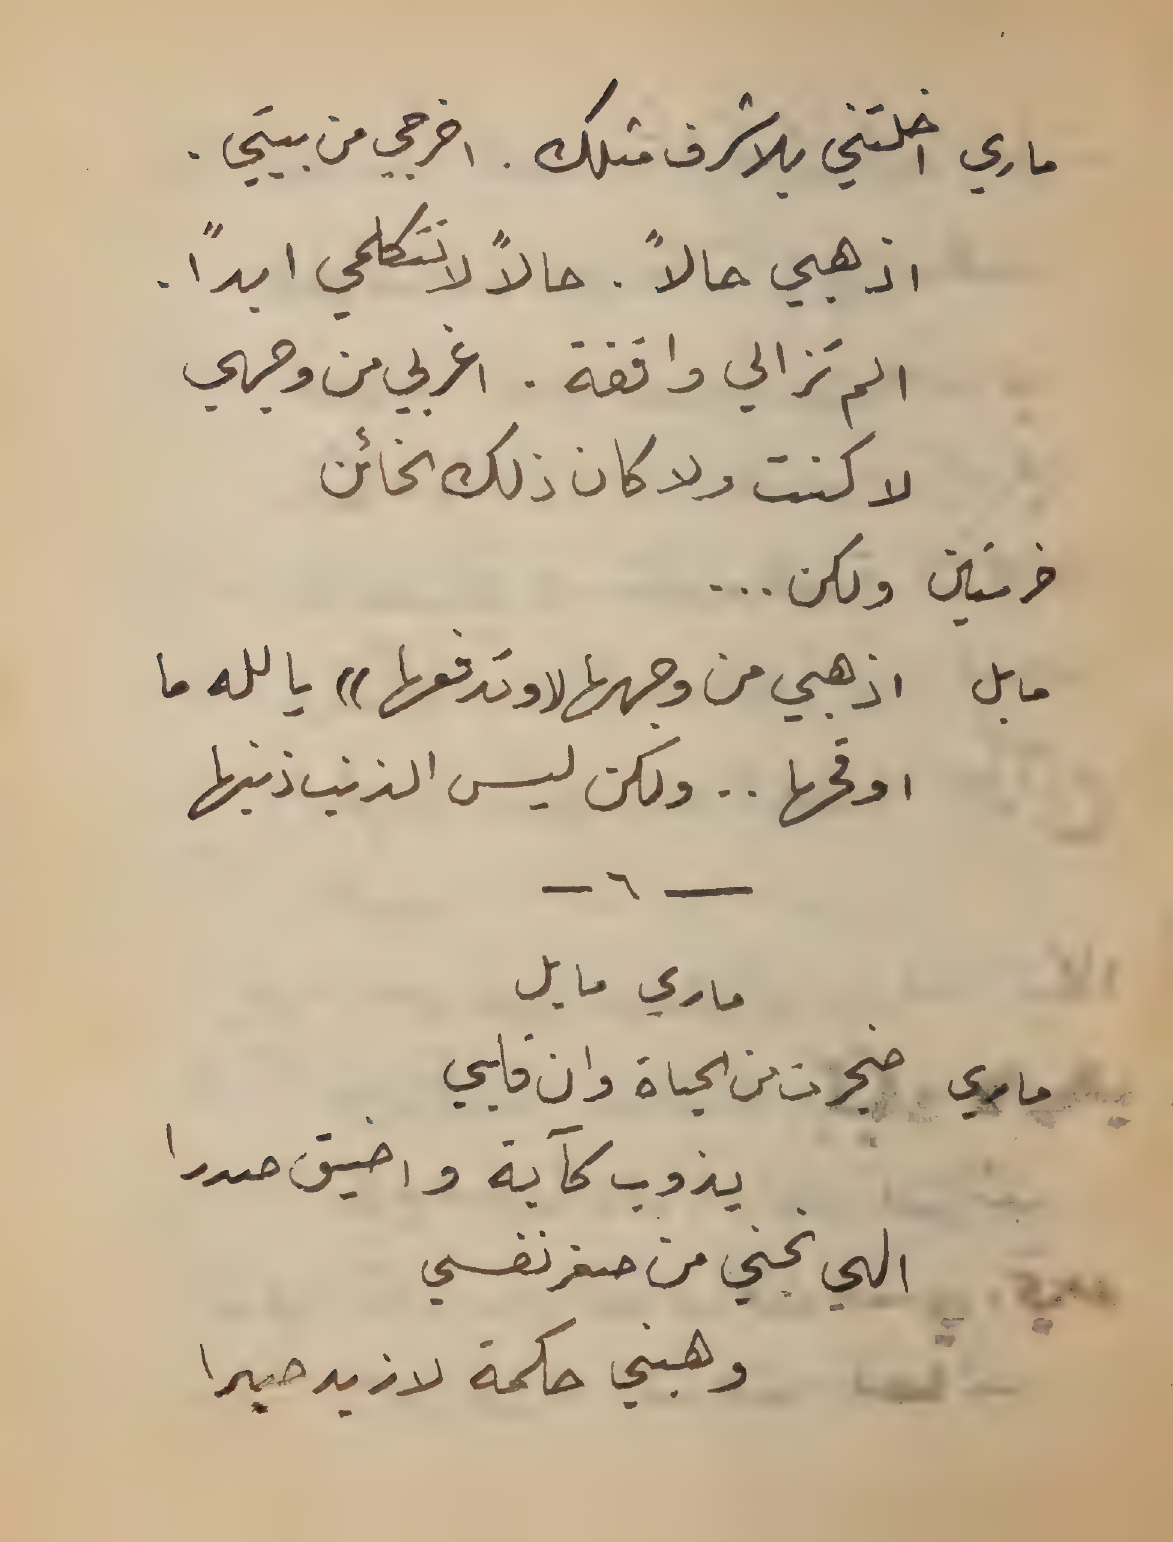 ماري اخلتني بلا شرف مثلك . اخرجي من بيتي .
اذهبي حالاً . حالاً لا تتكلمي ابداً .
الم تزالي واقفة . اغربي من وجهي
لا كنت ولا كان ذلك الخائن
ولكن ...
مابل اذهبي من وجهها «وتدفعها» يا لله ما
اوقحها .. ولكن ليس الذنب ذنبها
— ٦ —
ماري مابل
ماري ضجرت من الحياة وان قلبي
يذوب كآبة واضيق صدرا
الهي نجني من صغر نفسي
وهبني حكمة لازيد صبرا